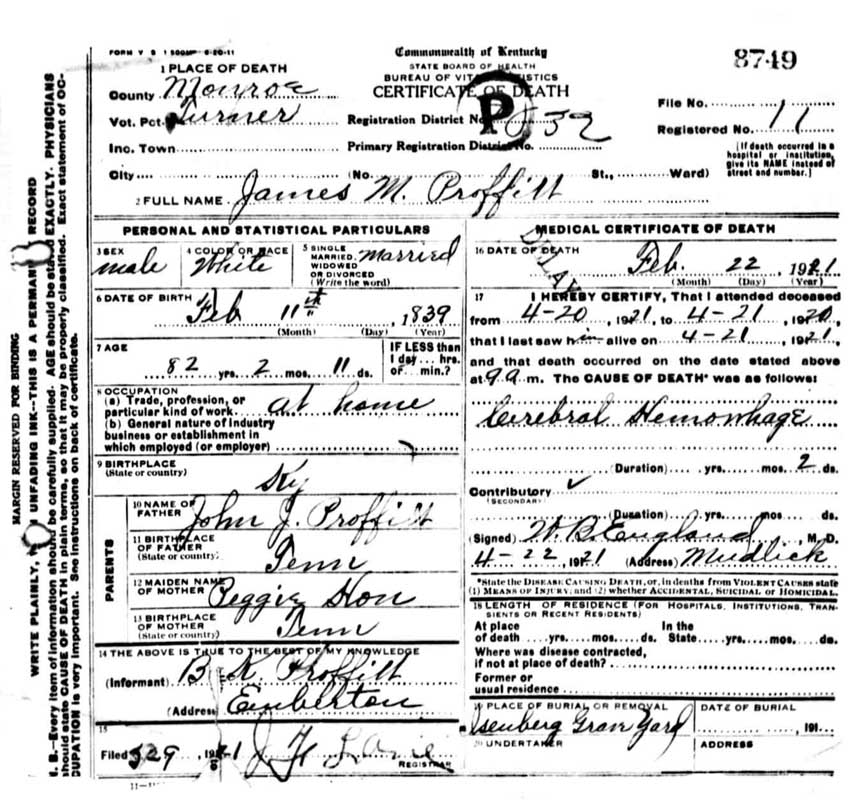 FORM V S 1 500M 6-20-11
Commonwealth of Kentucky
STATE BOARD OF HEALTH
BUREAU OF VITAL STATISTICS
CERTIFICATE OF DEATH
8749
1 PLACE OF DEATH
County Monroe
Vot. Pct. Turner
Inc. Town
City (No. St., Ward)
Registration District No. 832
P
Primary Registration District No.
File No.
Registered No. 11
[If death occurred in a hospital or institution, give its NAME instead of street and number.]
2 FULL NAME James M. Proffitt
PERSONAL AND STATISTICAL PARTICULARS
3 SEX
male
4 COLOR OR RACE
White
5 SINGLE
MARRIED,
WIDOWED
OR DIVORCED
(Write the word)
Married
6 DATE OF BIRTH
Feb 11th, 1839
(Month) (Day) (Year)
7 AGE
82 yrs. 2 mos. 11 ds.
IF LESS than
1 day... hrs.
or... min.?
8 OCCUPATION
(a) Trade, profession, or
particular kind of work at home
(b) General nature of industry
business or establishment in
which employed (or employer)
9 BIRTHPLACE
(State or country)
Ky
PARENTS
10 NAME OF
FATHER
John J. Proffitt
11 BIRTHPLACE
OF FATHER
(State or country)
Tenn
12 MAIDEN NAME
OF MOTHER
Peggie Hon
13 BIRTHPLACE
OF MOTHER
(State or country)
Tenn
14 THE ABOVE IS TRUE TO THE BEST OF MY KNOWLEDGE
(Informant) B. K. Proffitt
(Address) Emberton
15
Filed 529, 1921 J. H.
REGISTRAR
MEDICAL CERTIFICATE OF DEATH
16 DATE OF DEATH
Feb. 22, 1921
(Month) (Day) (Year)
17 I HEREBY CERTIFY, That I attended deceased
from 4-20, 1921, to 4-21, 1920,
that I last saw him alive on 4-21, 1921,
and that death occurred on the date stated above
at 9 a m. The CAUSE OF DEATH* was as follows:
Cerebral Hemorrhage
(Duration) yrs. mos. 2 ds.
Contributory
(SECONDARY)
(Duration) yrs. mos. ds.
(Signed) W. B. England, M. D.
4-22, 1921 (Address) Mudlick
*State the DISEASE CAUSING DEATH, or, in deaths from VIOLENT CAUSES state
(1) MEANS OF INJURY; and (2) whether ACCIDENTAL, SUICIDAL or HOMICIDAL.
18 LENGTH OF RESIDENCE (FOR HOSPITALS, INSTITUTIONS, TRAN-
SIENTS OR RECENT RESIDENTS)
At place In the
of death yrs. mos. ds. State yrs. mos. ds.
Where was disease contracted,
if not at place of death?
Former or
usual residence
19 PLACE OF BURIAL OR REMOVAL
Isenberg Grave Yard
DATE OF BURIAL
191
20 UNDERTAKER
ADDRESS
MARGIN RESERVED FOR BINDING
WRITE PLAINLY, UNFADING INK--THIS IS A PERMANENT RECORD
N. B.--Every item of information should be carefully supplied. AGE should be stated EXACTLY. PHYSICIANS
should state CAUSE OF DEATH in plain terms, so that it may be properly classified. Exact statement of OC-
CUPATION is very important. See instructions on back of certificate.